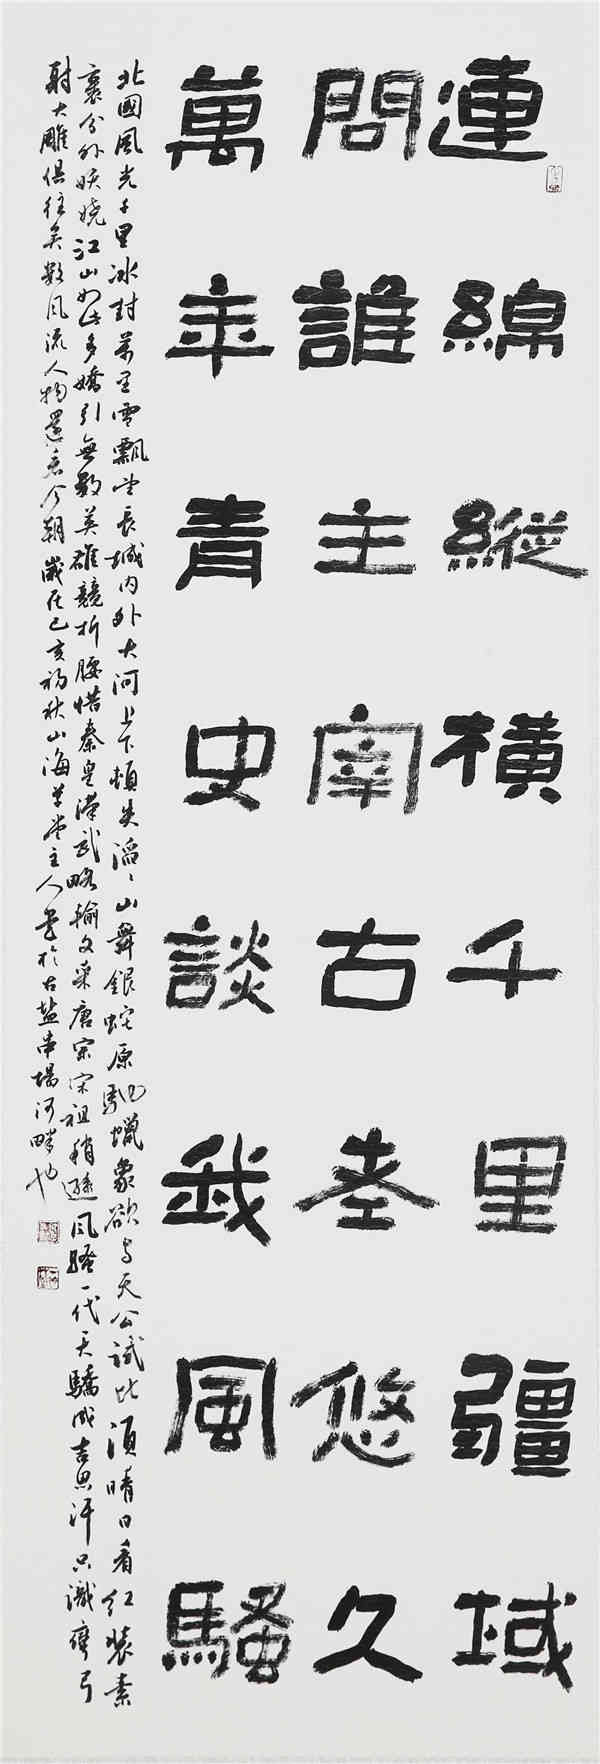 連綿縱橫千里疆域
問誰主宰古老悠久
萬年青史談我風騷
北國風光千里冰封萬里雪飄望長城内外大河上下頓失滔々山舞銀蛇原馳蠟象欲与天公試比須晴日看红裝素
裹分外妖嬈江山如此多嬌引無數英雄競折腰惜秦皇漢武略輸文采唐宗宋祖稍遜風騷一代天驕成吉思汗只識彎弓
射大雕俱往矣數風流人物還看今朝歲在己亥初秋山海草堂主人書於古盐串場河畔也